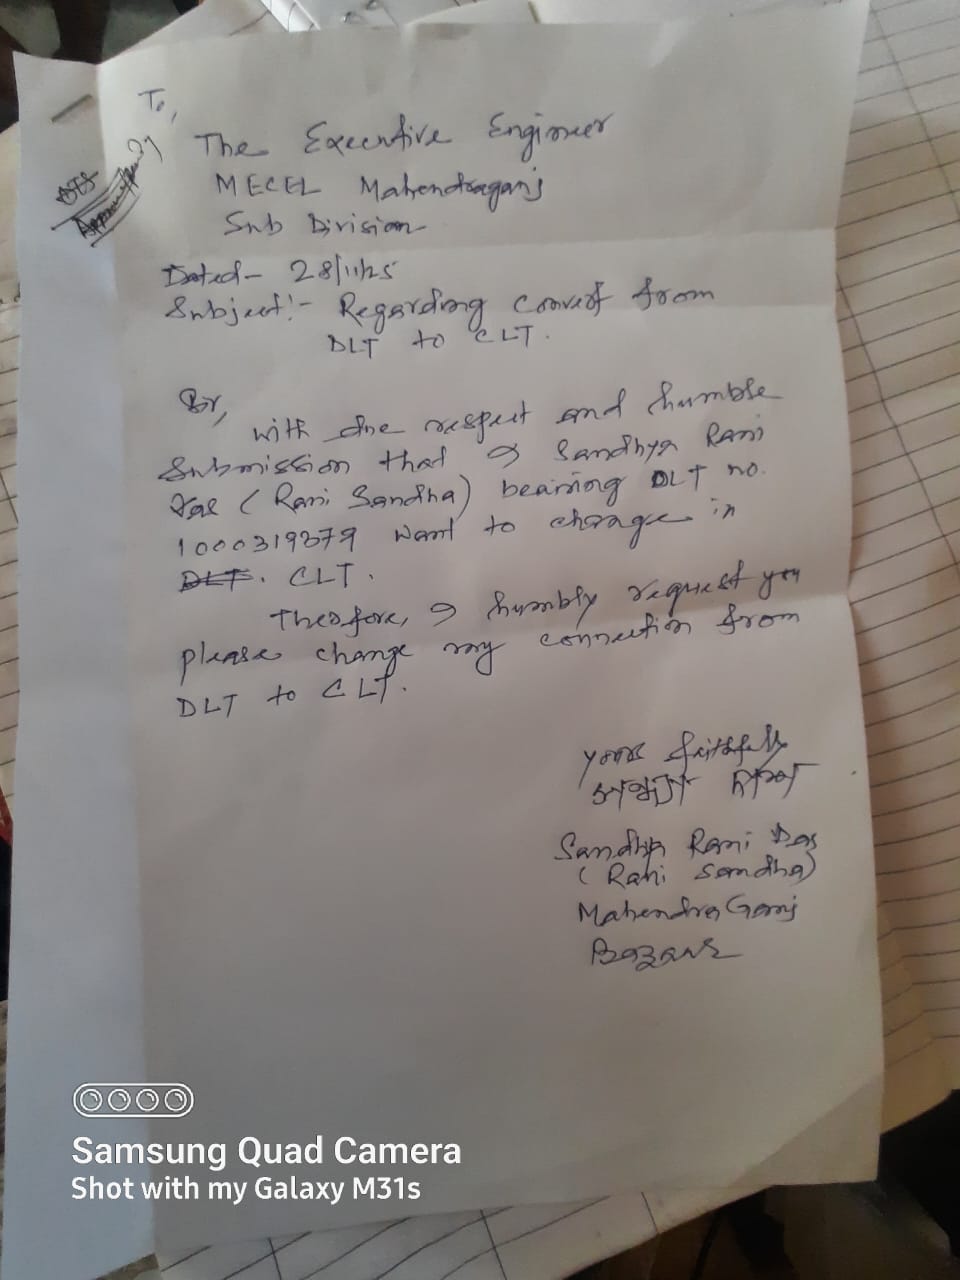 To,
The Executive Engineer
MECEL Mahendraganj
Sub Division
Dated- 28/11/25
Subject:- Regarding convert from
DLT to CLT.
Sir,
with due respect and humble
submission that I Sandhya Rani
Das (Rani Sandha) bearing DLT no.
1000319379 want to change in
DLT. CLT.
Therefore, I humbly request you
please change my connection from
DLT to CLT.
yours faithfully
Sandhya Rani Das
(Rani Sandha)
Mahendra Ganj
Bazar
Samsung Quad Camera
Shot with my Galaxy M31s